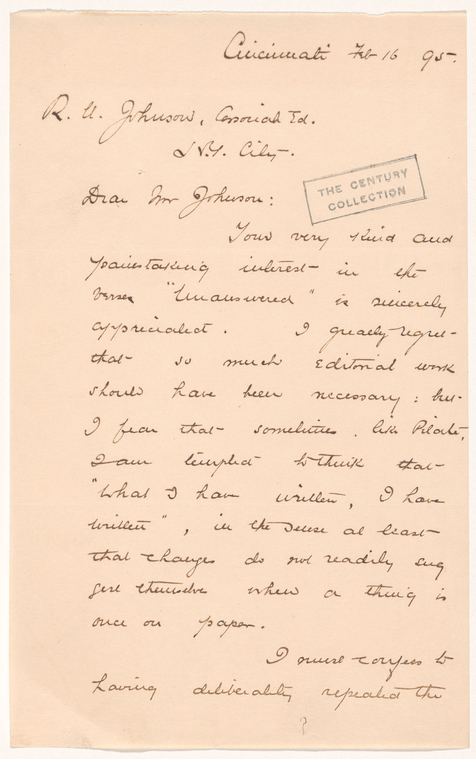 Cincinnati Feb 16 95.
R. U. Johnson, Associate Ed.
N.Y. City.
THE CENTURY
COLLECTION
Dear Mr Johnson:
Your very kind and
painstaking interest in the
verses "Unanswered" is sincerely
appreciated. I greatly regret
that so much editorial work
should have been necessary: but
I fear that sometimes, like Pilate,
I am tempted to think that
"What I have written, I have
written", in the sense at least
that changes do not readily sug
gest themselves when a thing is
once on paper.
I must confess to
having deliberately repeated the